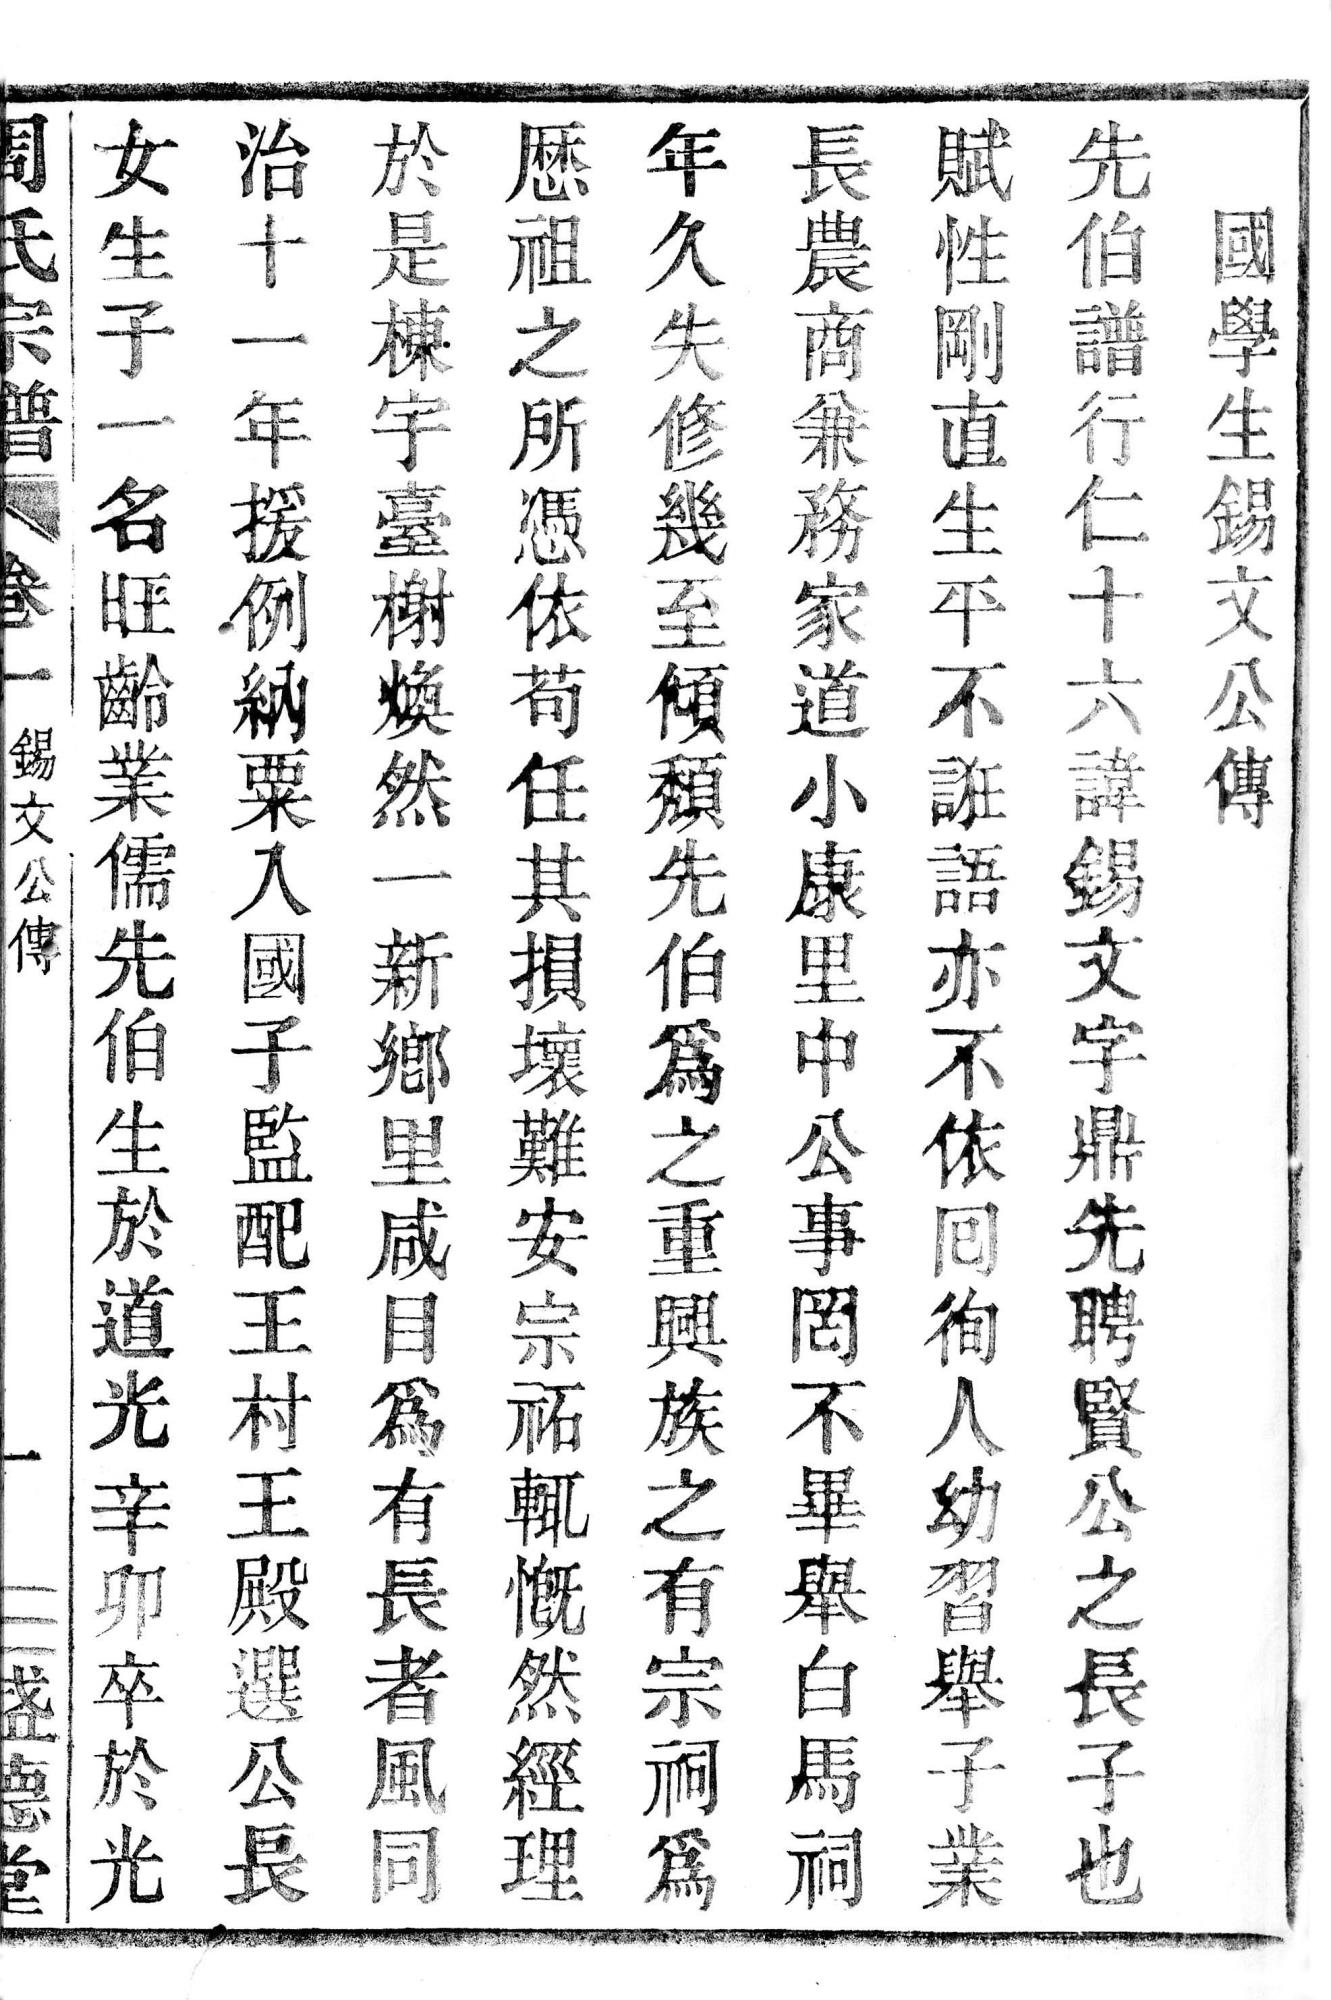 國學生錫文公傳
先伯譜行仁十六諱錫文字鼎先聘賢公之長子也
賦性剛直生平不誑語亦不依回徇人幼習舉子業
長農商兼務家道小康里中公事罔不畢舉白馬祠
年久失修幾至傾頹先伯爲之重興族之有宗祠爲
歷祖之所憑依苟任其損壞難安宗祏輒慨然經理
於是棟宇臺榭煥然一新鄉里咸目爲有長者風同
治十一年援例納粟入國子監配王村王殿選公長
女生子一名旺齡業儒先伯生於道光辛卯卒於光
周氏宗譜 卷一 錫文公傳 一 盛德堂